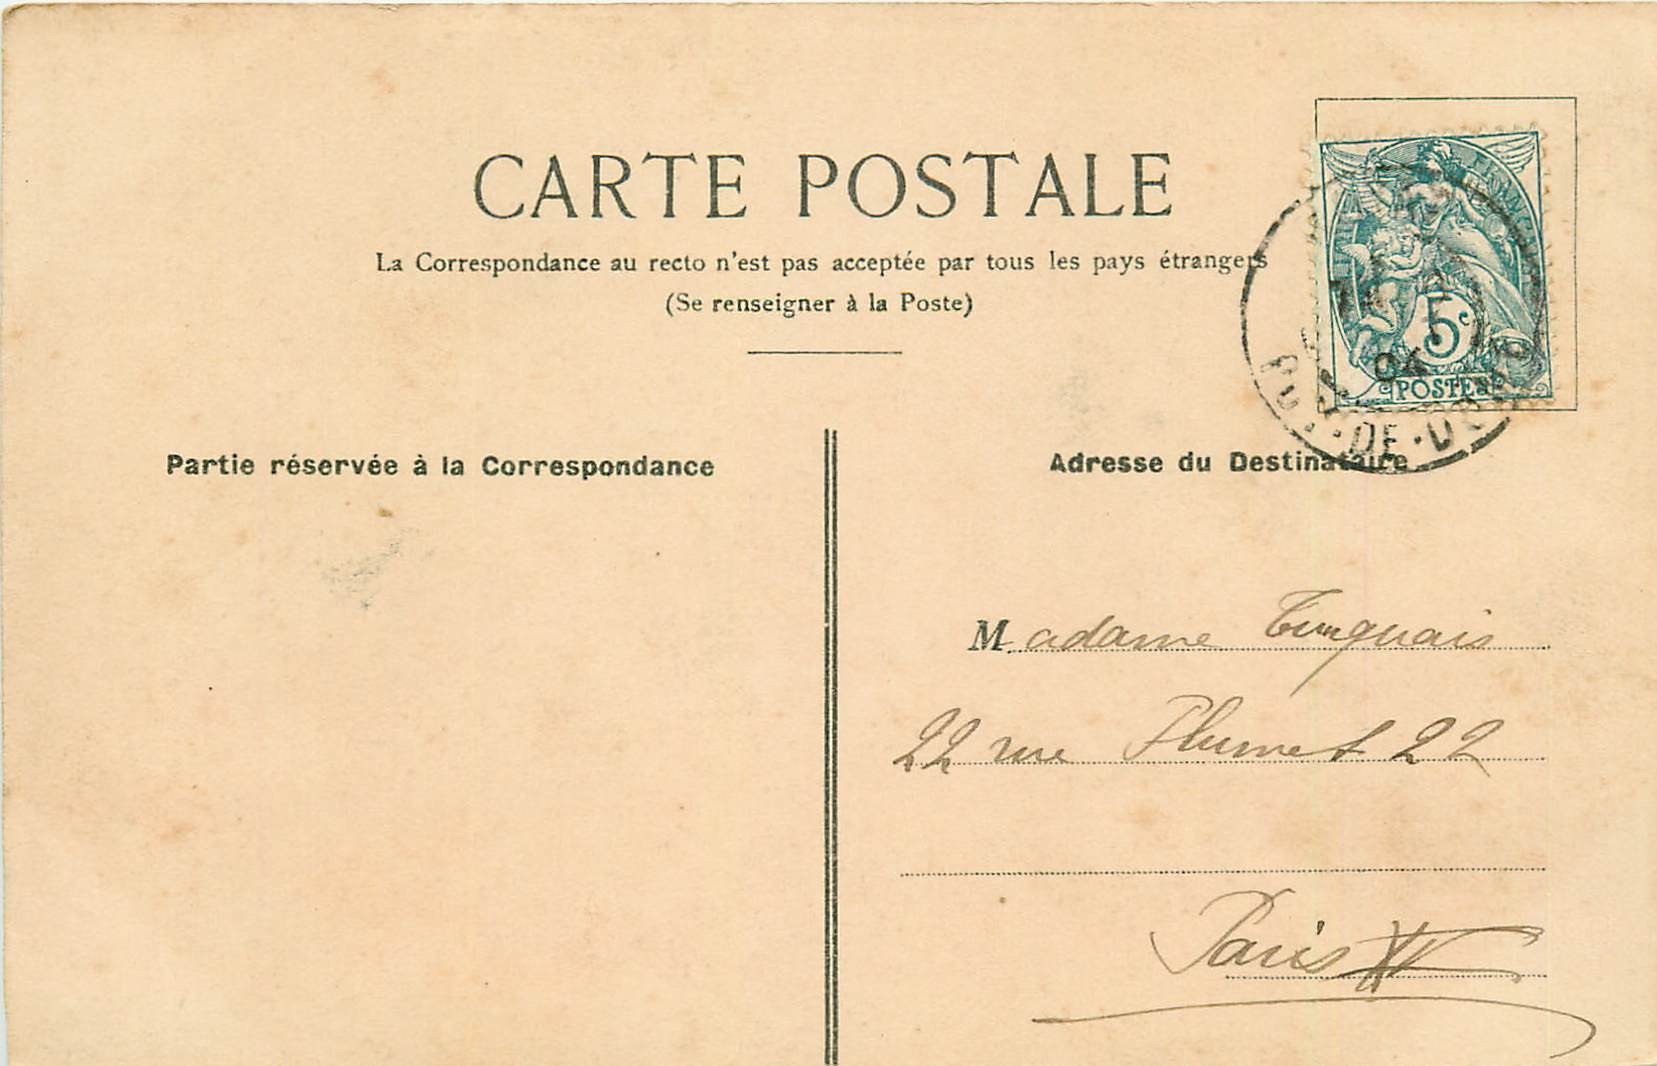 CARTE POSTALE
La Correspondance au recto n'est pas acceptée par tous les pays étrangers
(Se renseigner à la Poste)
5c
POSTES
04
PUY-DE-DOME
Partie réservée à la Correspondance
Adresse du Destinataire
Madame Turquais
22 rue Plumet 22
Paris XV